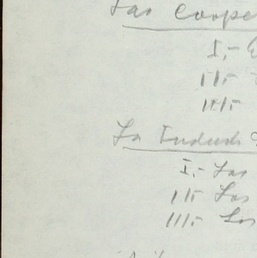 Las Coope
I.-
II.-
III.-
La Industr
I.- Las
II.- Las
III.- Los